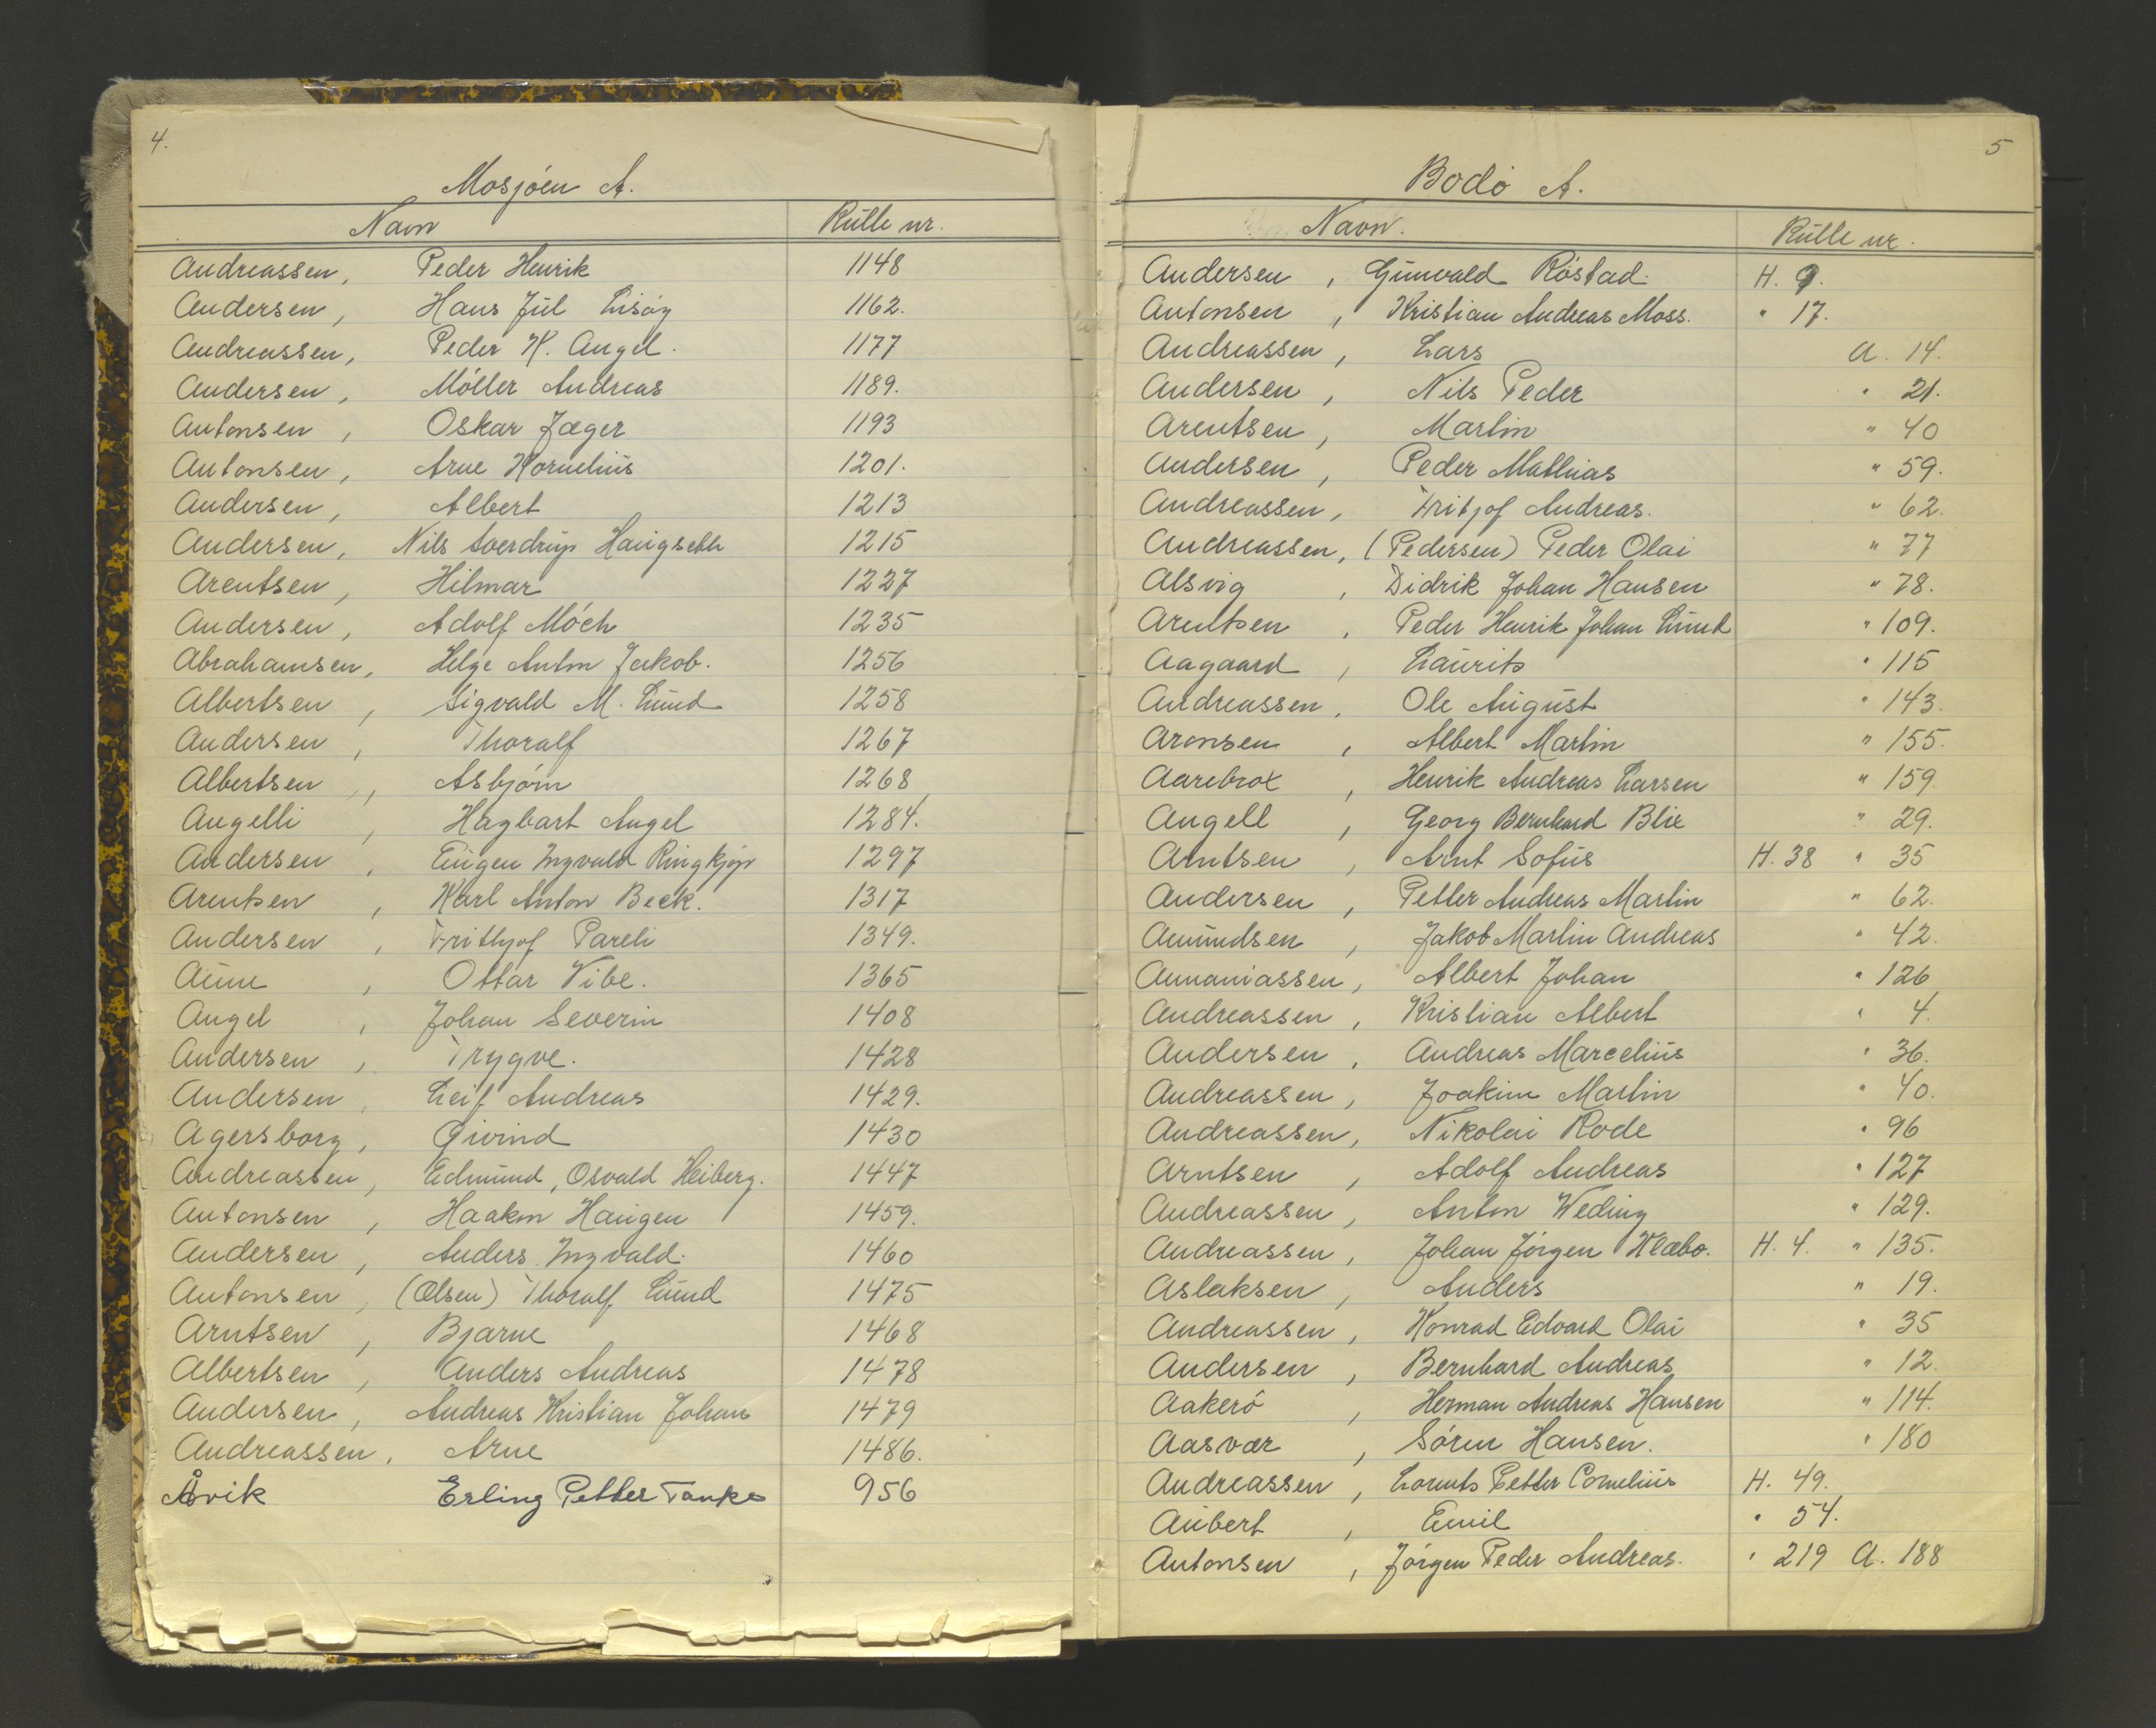 4.
Mosjøen A.
Navn Rulle nr.
Andreassen, Peder Henrik 1148
Andersen, Hans Jul Lisøy 1162.
Andreassen, Peder H. Angel. 1177
Andersen, Møller Andreas 1189.
Antonsen, Oskar Jæger 1193
Antonsen, Arne Kornelius 1201.
Andersen, Albert 1213
Andersen, Nils Sverdrup 1215
Arentsen, Hilmar 1227
Andersen, Adolf Móch 1235
Abrahamsen, Helge Anton Jakob. 1256
Albertsen, Sigvald M. Lund 1258
Andersen, Thoralf 1267
Albertsen, Asbjørn 1268
Angelli, Hagbart Angel 1284.
Andersen, Eugen Ingvald Ringkjøp 1297
Arentsen, Karl Anton Beck. 1317
Andersen, Frithjof Pareli 1349.
Aune, Ottar Vibe. 1365
Angel, Johan Severin 1408
Andersen, Trygve. 1428
Andersen, Leif Andreas 1429.
Agersborg, Øivind 1430
Andreassen, Edmund, Osvald Heiberg. 1447
Antonsen, Haakon Haugen 1459.
Andersen, Anders Ingvald. 1460
Antonsen, (Olsen) Thoralf Lund 1475
Arntsen, Bjarne 1468
Albertsen, Anders Andreas 1478
Andersen, Andreas Kristian Johan 1479
Andreassen, Arne 1486.
Åvik Erling Petter Tanke 956
5
Bodø A.
Navn. Rulle nr.
Andersen, Gunvald Røstad. H. 9.
Antonsen, Kristian Andreas Moss. " 17.
Andreassen, Lars A. 14.
Andersen, Nils Peder " 21.
Arentsen, Martin " 40
Andersen, Peder Mathias " 59.
Andreassen, Fritjof Andreas. " 62.
Andreassen, (Pedersen) Peder Olai " 77
Alsvig, Didrik Johan Hansen " 78.
Arentsen, Peder Henrik Johan Lund " 109.
Aagaard, Laurits " 115
Andreassen, Ole August " 143.
Aronsen, Albert Martin " 155.
Aarebrot, Henrik Andreas Larsen " 159.
Angell, Georg Bernhard Blix " 29.
Arntsen, Arnt Sofus H. 38 " 35
Andersen, Petter Andreas Martin " 62.
Amundsen, Jakob Martin Andreas " 42.
Annaniassen, Albert Johan " 126
Andreassen, Kristian Albert " 4.
Andersen, Andreas Marcelius " 36.
Andreassen, Joakim Martin " 40.
Andreassen, Nikolai Rode " 96
Arntsen, Adolf Andreas " 127
Andreassen, Anton Weding " 129.
Andreassen, Johan Jørgen Klæbo. H. 4. " 135.
Aslaksen, Anders " 19.
Andreassen, Konrad Edvard Olai " 35
Andersen, Bernhard Andreas " 12.
Aakerø, Herman Andreas Hansen " 114.
Aasvær, Søren Hansen. " 180
Andreassen, Lorents Petter Cornelius H. 49.
Aubert, Emil " 54.
Antonsen, Jørgen Peder Andreas. " 219 A. 188